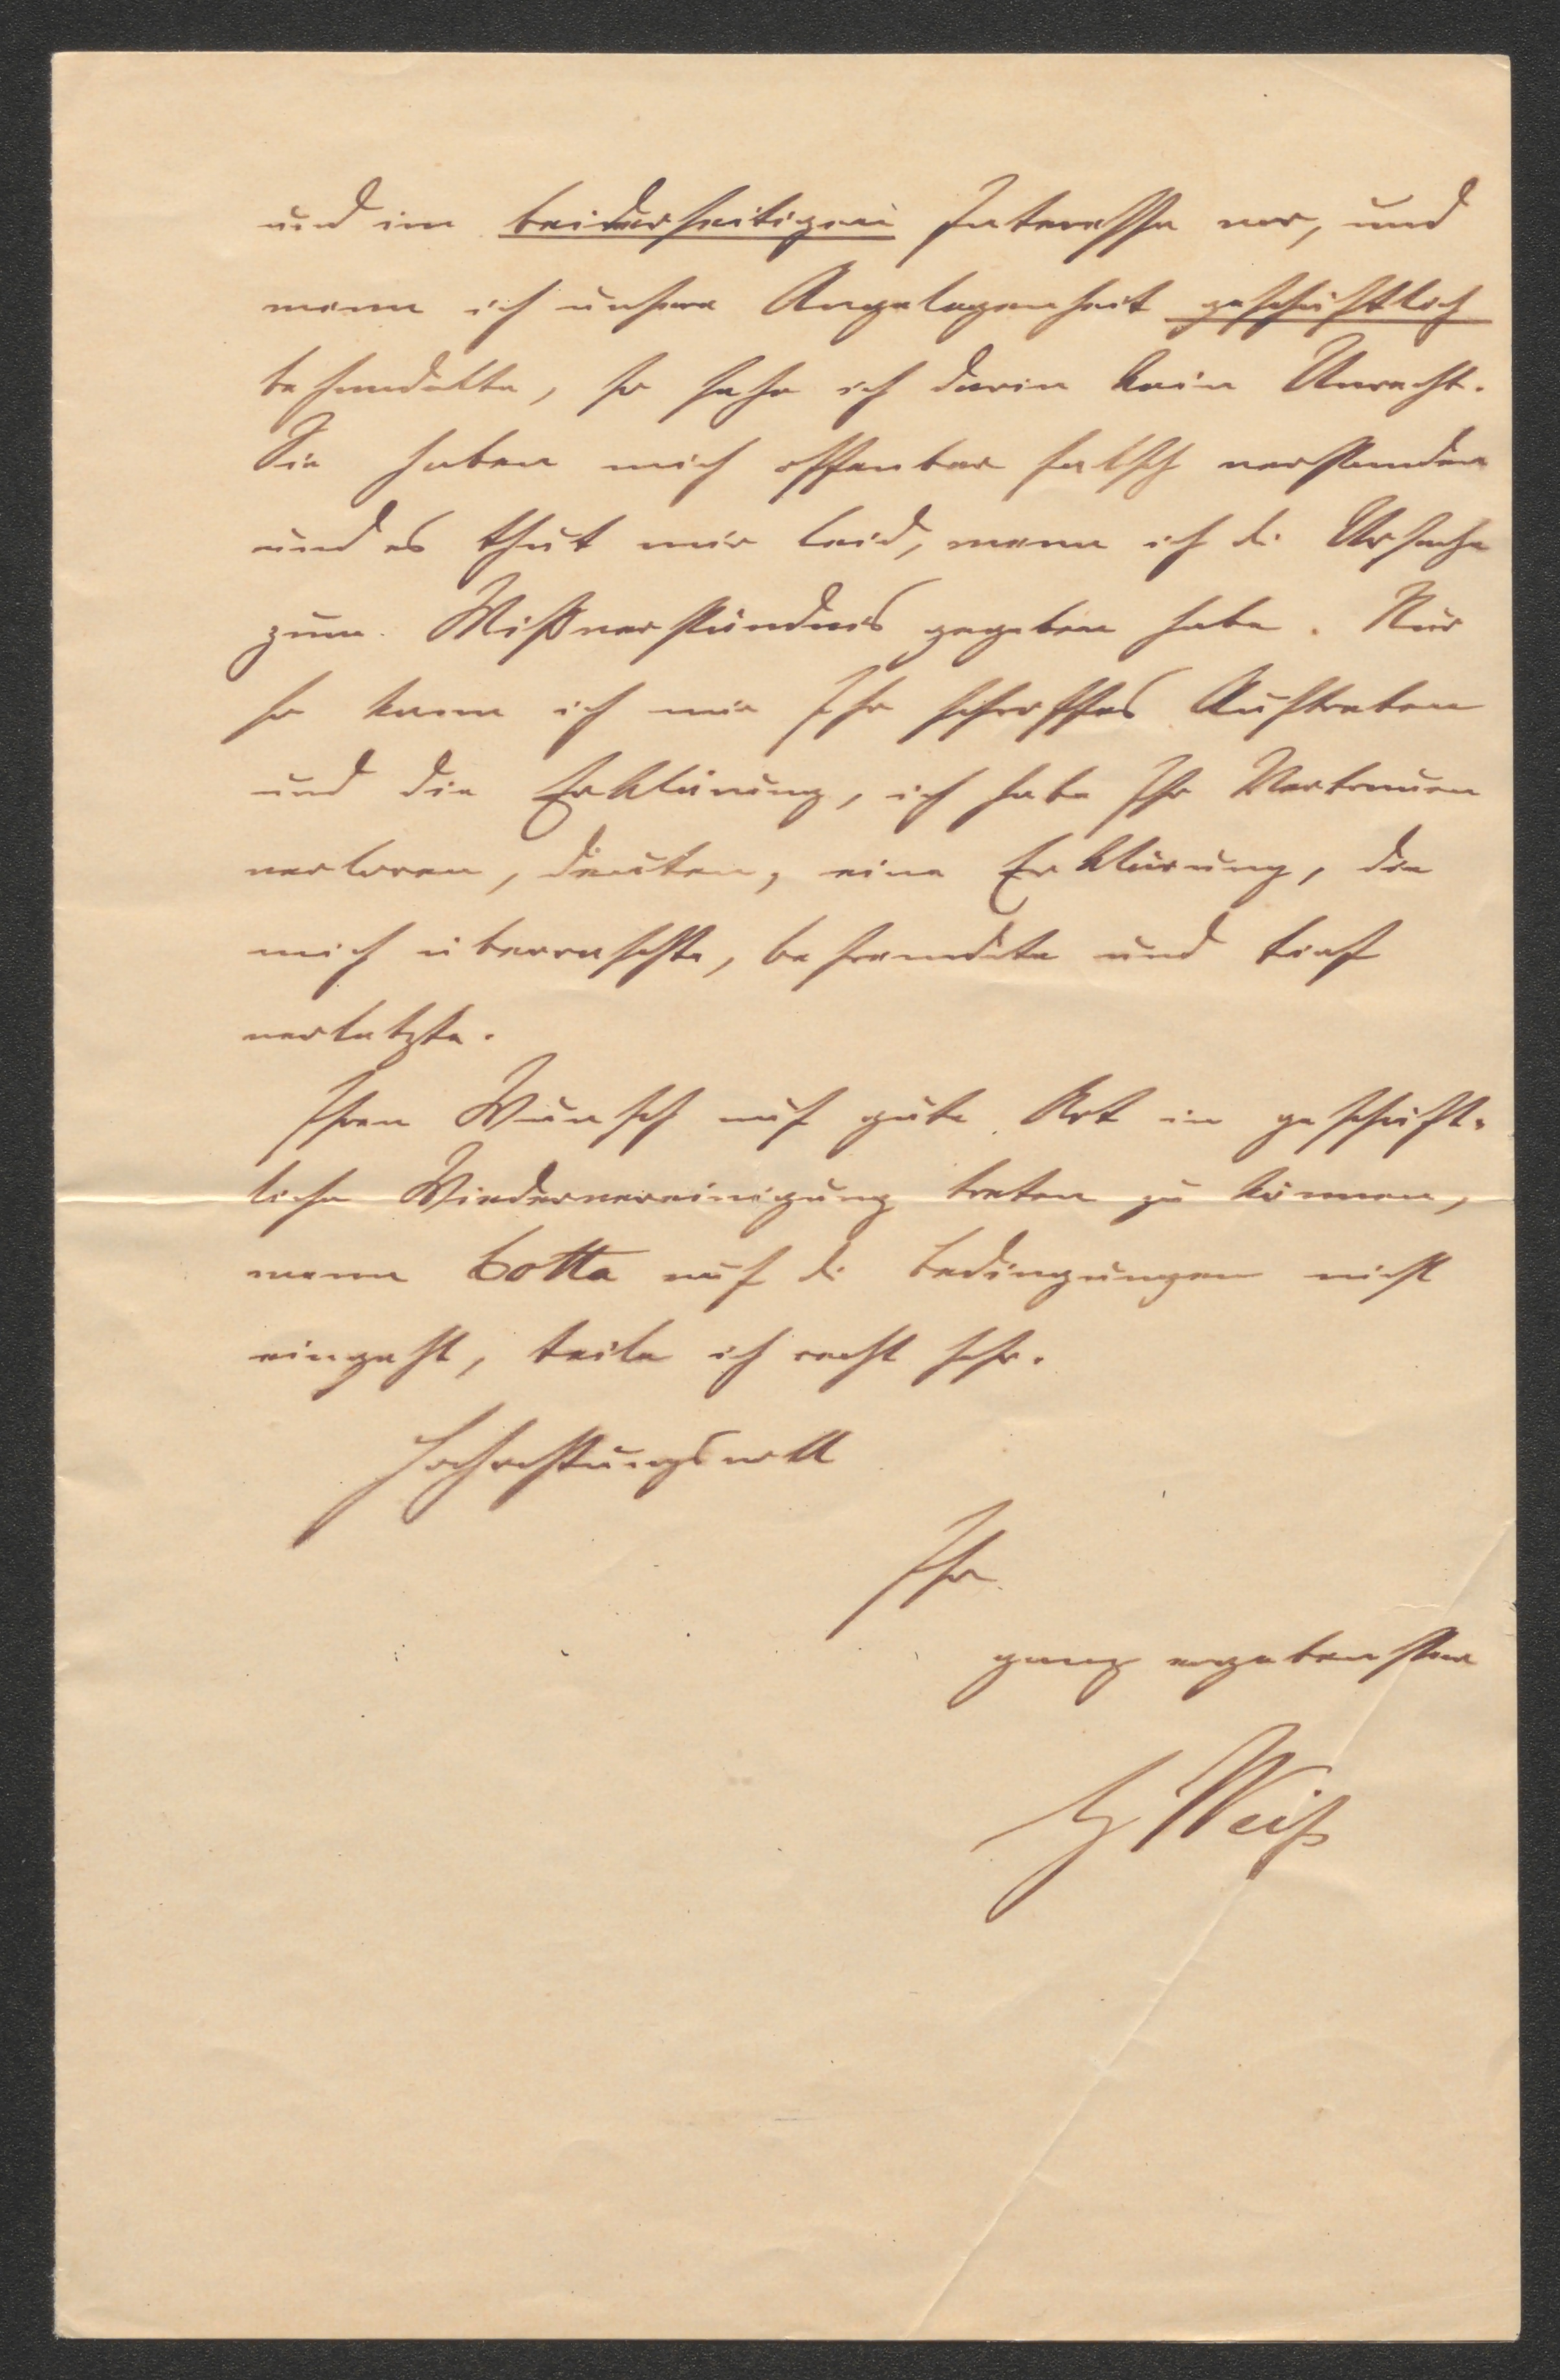 und im beiderseitigen Interesse vor, und
wenn ich unsere Angelegenheit geschäftlich
behandelte, so sehe ich darin kein Unrecht.
Sie haben mich offenbar falsch verstanden
und es thut mir leid, wenn ich di Ursache
zum Mißverständnis gegeben habe. Nur
so kann ich mir Ihr schroffes Auftreten
und die Erklärung, ich habe Ihr Vertrauen
verloren, deuten, eine Erklärung, die
mich überraschte, befremdete und tief
verletzte.
Ihren Wunsch auf gute Art in geschäft-
liche Wiedervereinigung treten zu können,
wenn Cotta auf di Bedingungen nicht
eingeht, teile ich recht sehr.
Hochachtungsvoll
Ihr
ganz ergebenster
Weiß